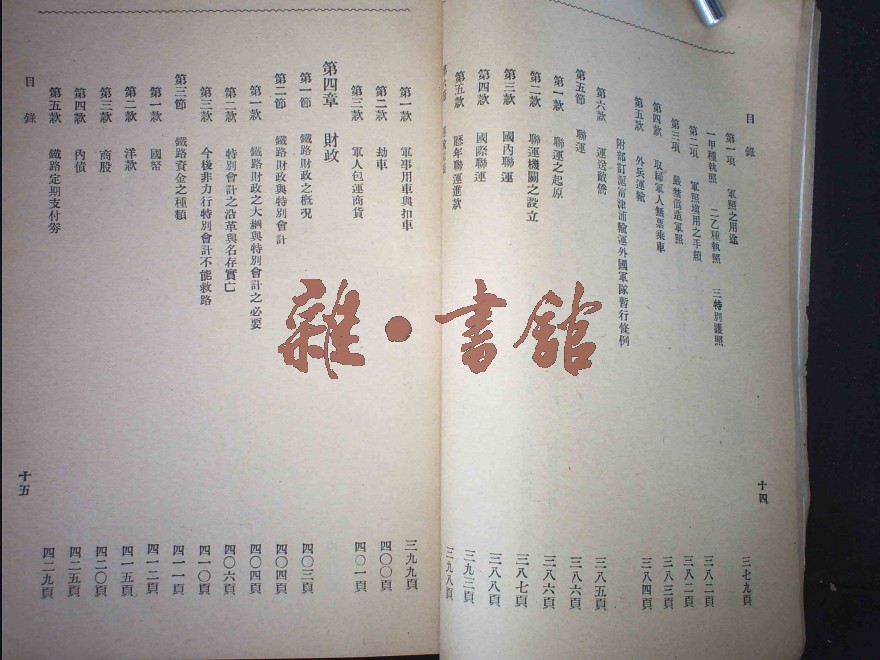 目錄
第一項 軍照之用途 三七九頁
一甲種執照 二乙種執照 三特別護照 三八二頁
第二項 軍照塡用之手續 三八二頁
第三項 嚴禁僞造軍照 三八三頁
第四款 取締軍人無票乘車 三八四頁
第五款 外兵運輸
附部訂滬甯津浦輸運外國軍隊暫行條例
第六款 運送敵僑 三八五頁
第五節 聯運 三八六頁
第一款 聯運之起原 三八六頁
第二款 聯運機關之設立 三八七頁
第三款 國內聯運 三八八頁
第四款 國際聯運 三九三頁
第五款 歷年聯運進款 三九八頁
十四
第一款 軍事用車與扣車 三九九頁
第二款 劫車 四〇〇頁
第三款 軍人包運商貨 四〇一頁
第四章 財政
第一節 鐵路財政之槪況 四〇三頁
第二節 鐵路財政與特別會計 四〇四頁
第一款 鐵路財政之大綱與特別會計之必要 四〇四頁
第二款 特別會計之沿革與名存實亡 四〇六頁
第三款 今後非力行特別會計不能救路 四一〇頁
第三節 鐵路資金之種類 四一一頁
第一款 國帑 四一二頁
第二款 洋款 四一五頁
第三款 商股 四二〇頁
第四款 內債 四二五頁
第五款 鐵路定期支付劵 四二九頁
目錄
十五
雜·書館